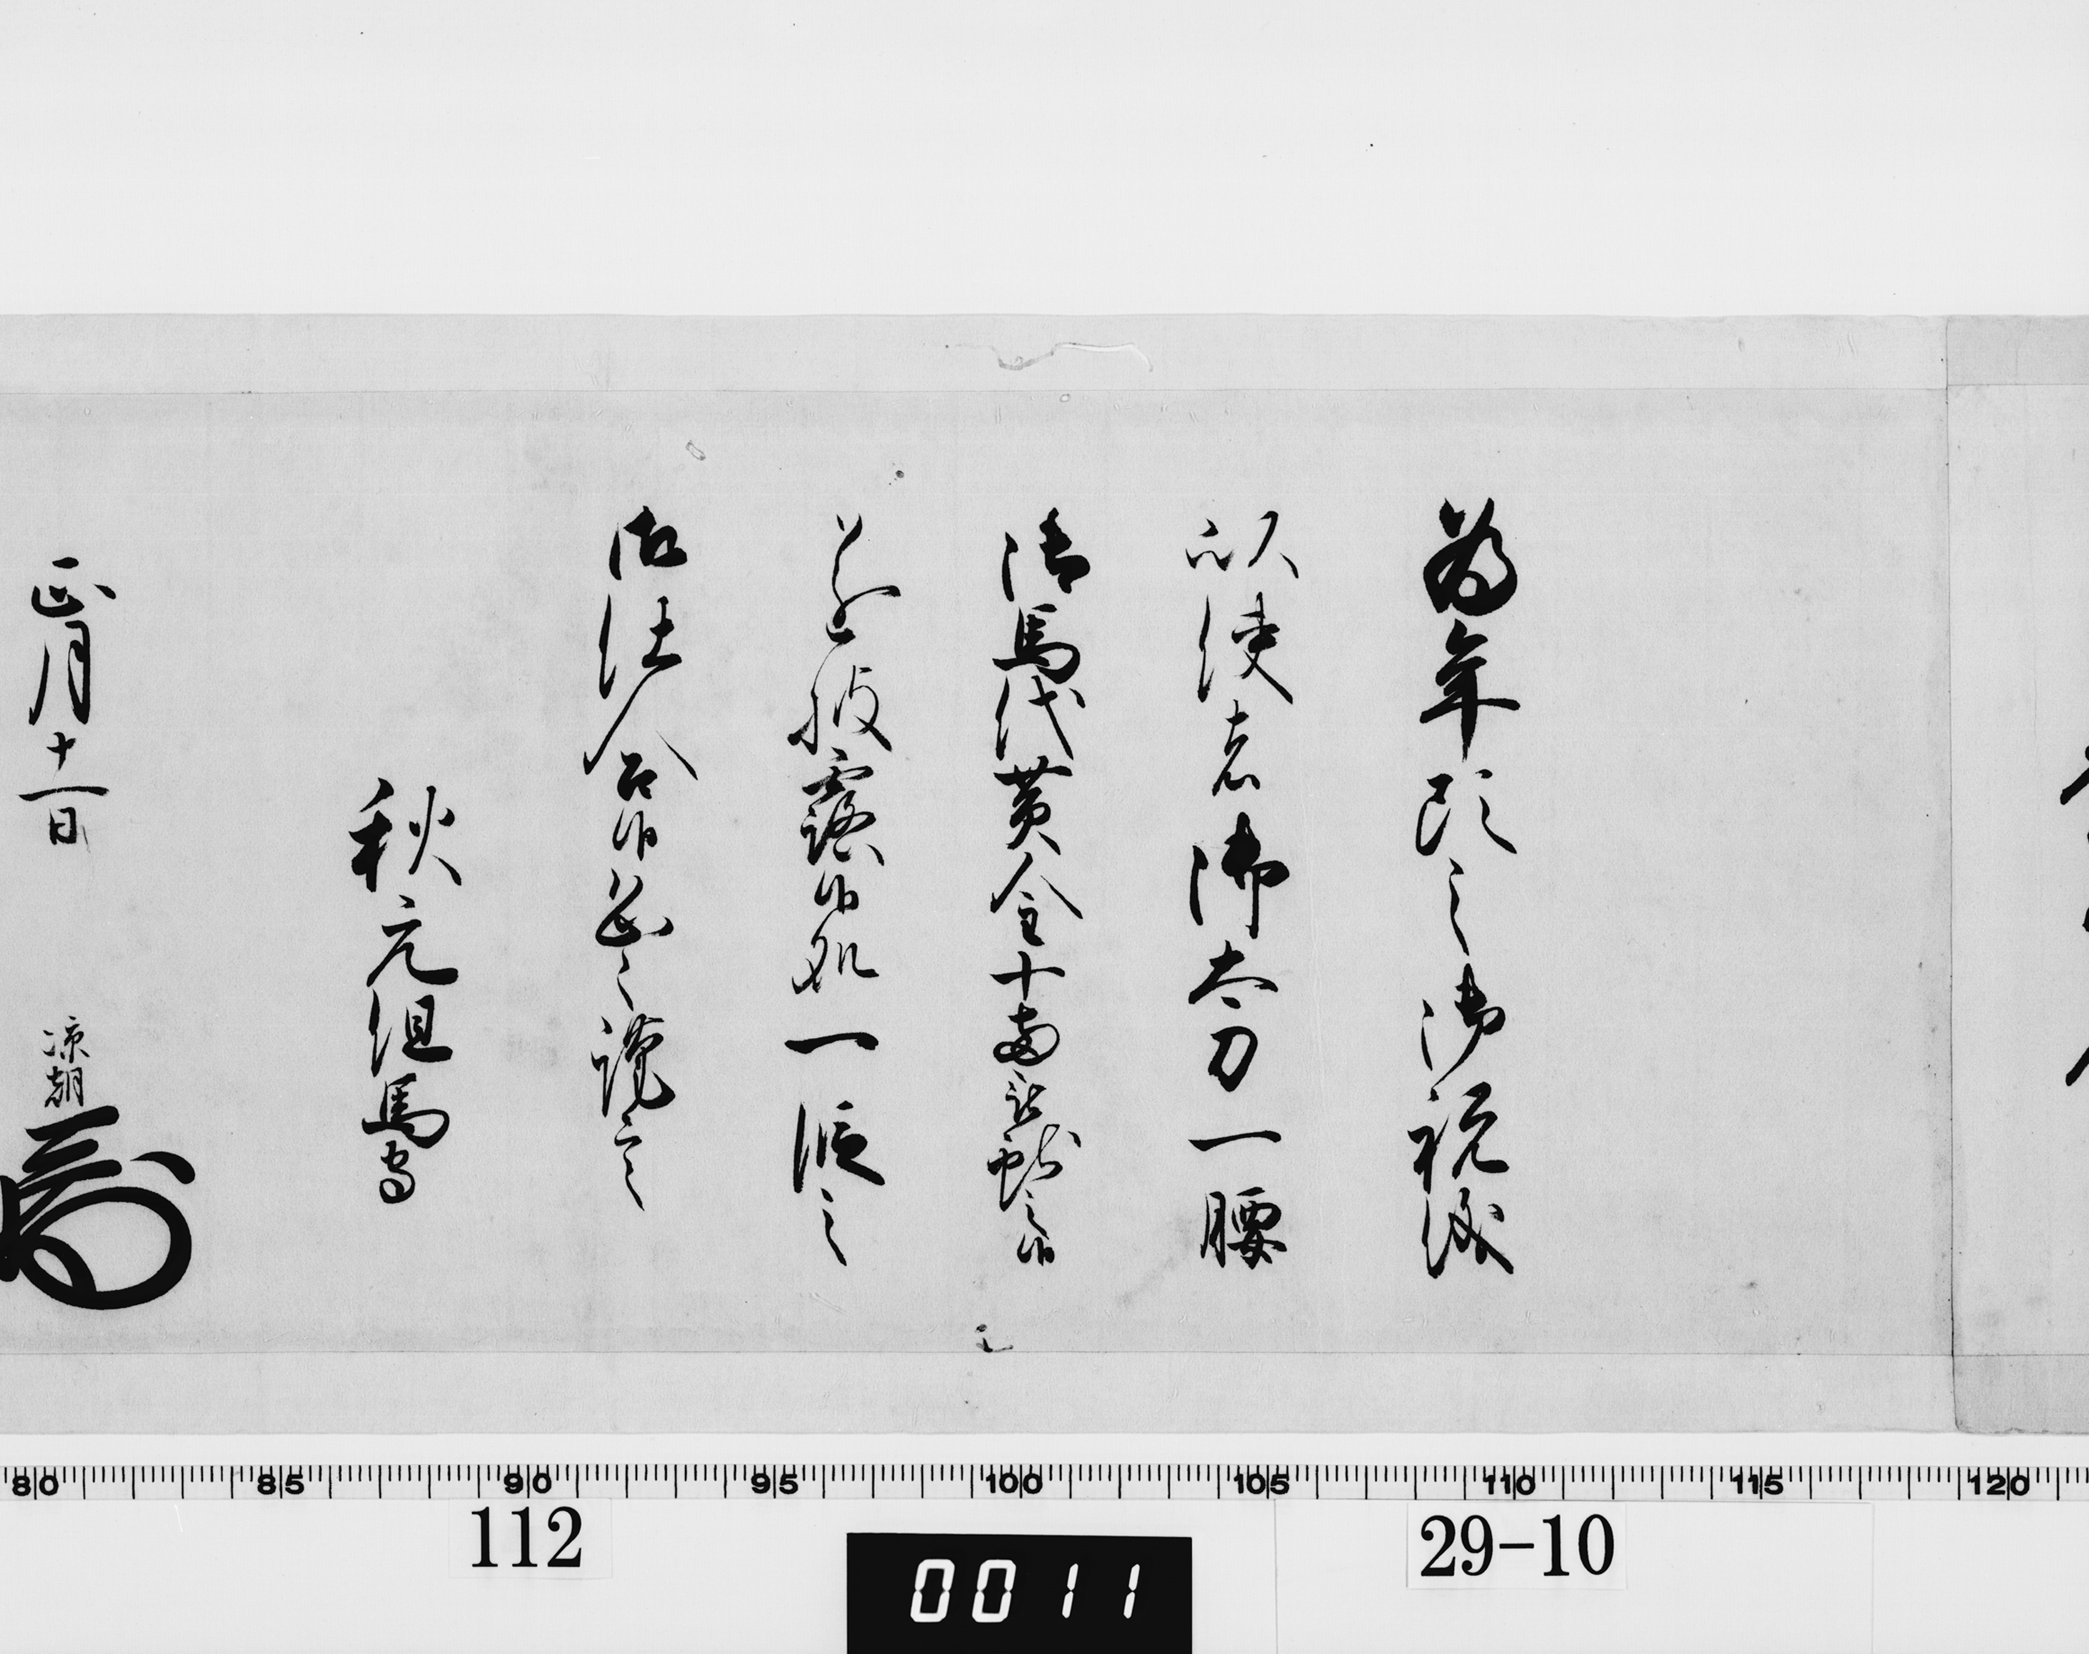 為年頭之御祝儀
以使者御太刀一腰
御馬代黄金十両被献之候
遂披露候処一段之
御仕合候恐々謹言
秋元但馬守
正月十一日
凉朝
80 85 90 95 100 105 110 115 120
112
0011
29-10